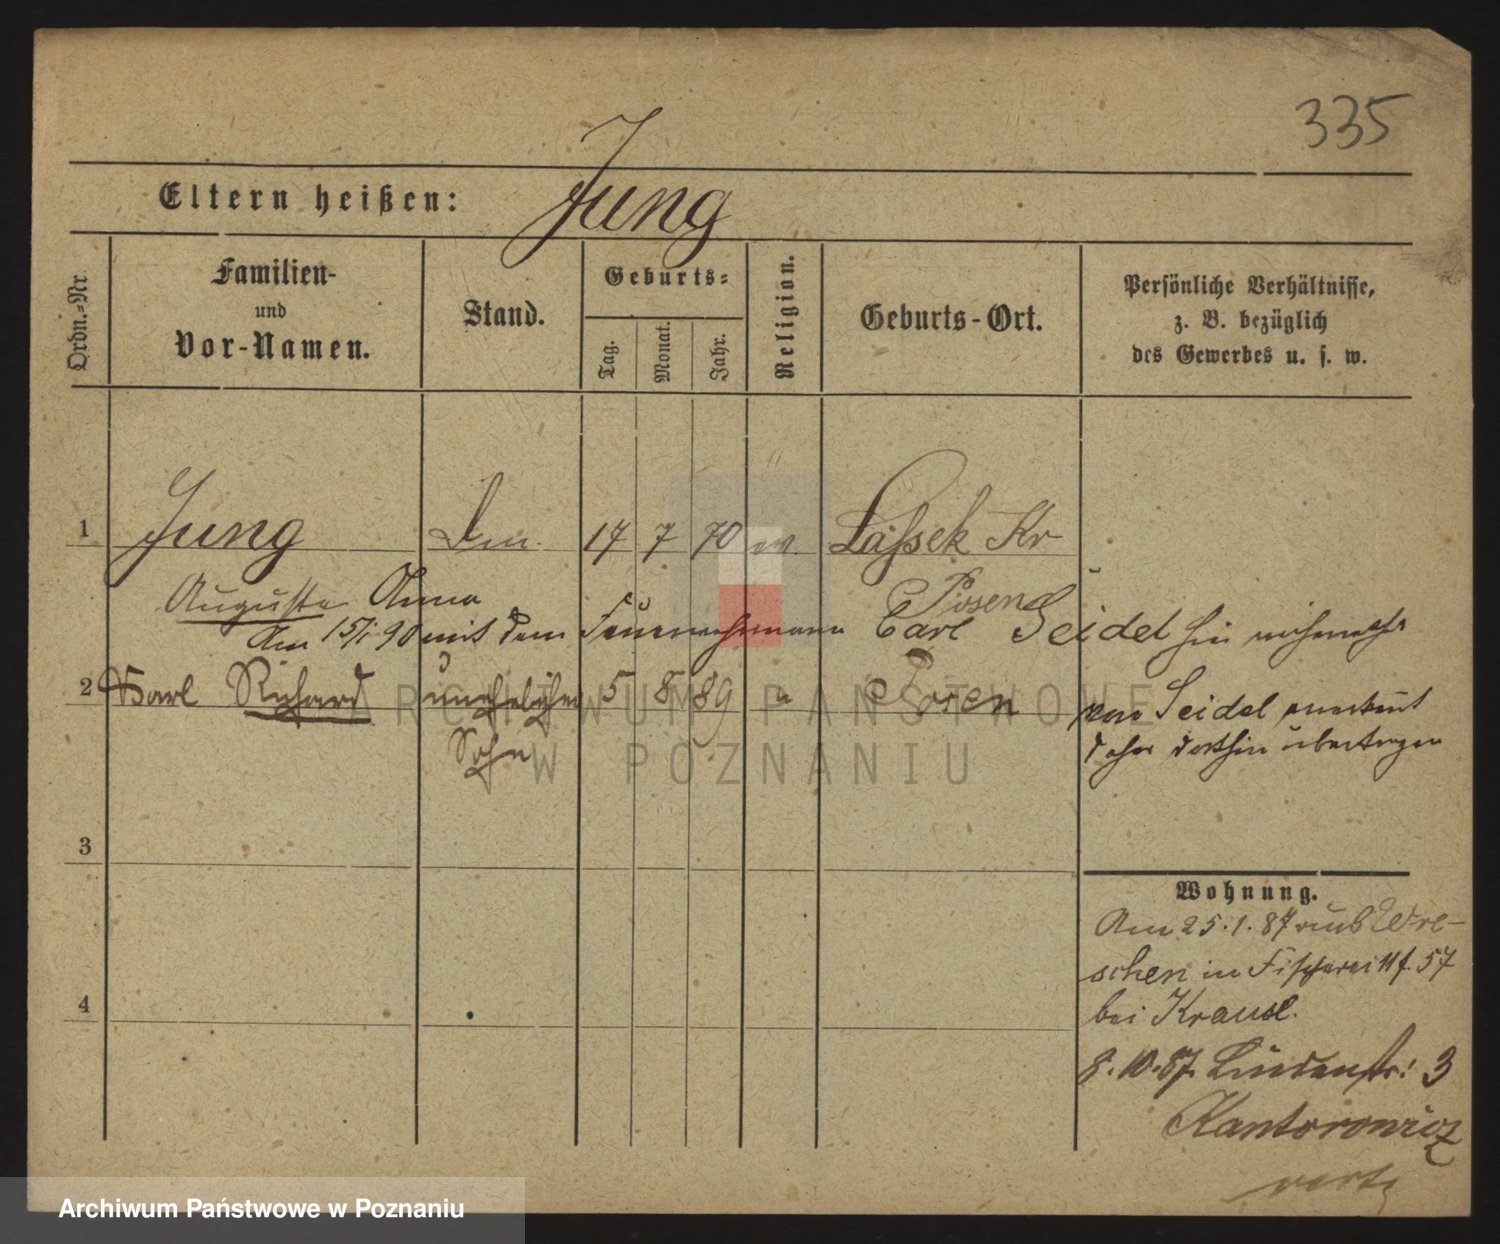 335
Eltern heißen: Jung
Ordn.-Nr.
Familien-
und
Vor-Namen.
Stand.
Geburts-
Tag.
Monat.
Jahr.
Religion.
Geburts-Ort.
Persönliche Verhältnisse,
z. B. bezüglich
des Gewerbes u. s. w.
1 Jung 17 7 70 ev. Lassek Kr
Auguste Anna Posen
Am 15/1 90 mit dem Feuerwehrmann Carl Seidel
2 Karl Richard unehelicher 5 8 89 Posen von Seidel anerkannt
Sohn daher dorthin übertragen
3
4
Wohnung.
Am 25.1.87 aus Wre-
schen in Fischerei 57
bei Krause.
8.10.87 Lindenstr. 3
Kantorowicz
ARCHIWUM PAŃSTWOWE
W POZNANIU
Archiwum Państwowe w Poznaniu